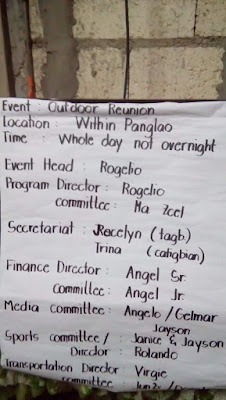 Event : Outdoor Reunion
Location : Within Panglao
Time : Whole day not overnight
Event Head : Rogelio
Program Director : Rogelio
committee : Ma Zcel
Secretariat : Jocelyn (tagb)
Trina (cahigbian)
Finance Director : Angel Sr.
Committee : Angel Jr.
Media committee : Angelo / Gelmar
Jayson
Sports committee / : Janice & Jayson
Director : Rolando
Transportation Director : Virgie
committee :